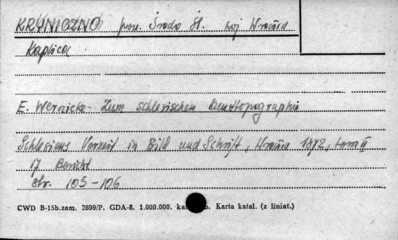 KRYNICZNO pow. Środa Śl. woj Wrocław
Kaplica
E. Wernicke - Zum schlesischen Kunsttopographie
Schlesiens Vorzeit in Bild und Schrift, 1872, tom II
17 Bericht
str. 105-106
CWD B-15b.zam. 2899/P. GDA-8. 1.000.000. Karta katal. (z liniat.)